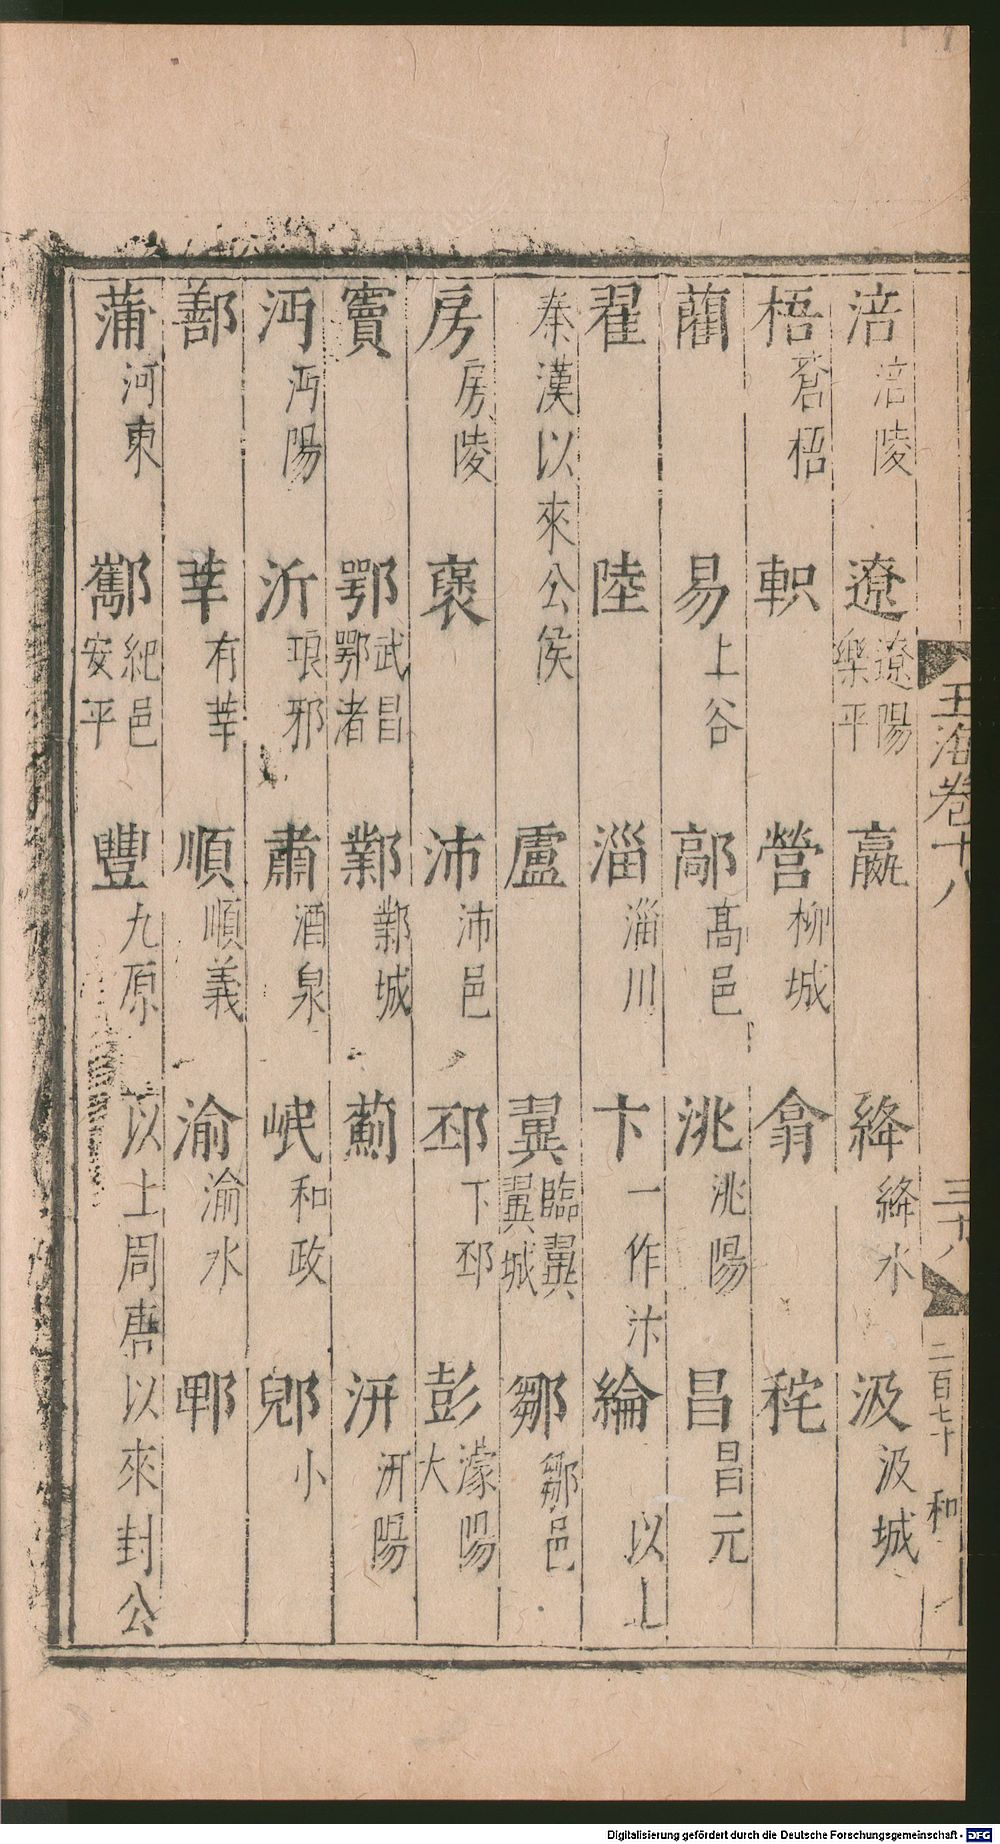 涪涪陵 遼遼陽樂平 嬴 絳絳水 汲汲城
梧蒼梧 軹 營柳城 翕 秺
藺 易上谷 鄗高邑 洮洮陽 昌昌元
翟 陸 淄淄川 卞一作汴 綸以上
秦漢以來公侯 盧 翼臨翼翼城 鄒鄒邑
房房陵 褒 沛沛邑 邳下邳 彭濛陽大
竇 鄂武昌鄂渚 鄴鄴城 薊 汧汧陽
沔沔陽 沂琅邪 肅酒泉 岷和政 郳小
鄯 莘有莘 順順義 渝渝水 鄆
蒲河東 酅紀邑安平 豐九原 以上周唐以來封公
玉海卷十八
三十八
二百七十 和
Digitalisierung gefördert durch die Deutsche Forschungsgemeinschaft - DFG